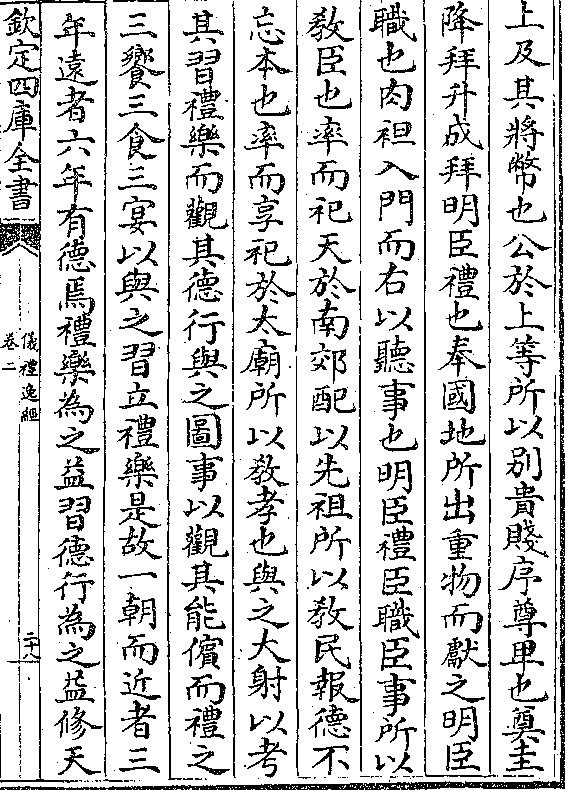 上及其將幣也公於上等所以别貴賤序尊卑也奠圭
降拜升成拜明臣禮也奉國地所出重物而獻之明臣
職也肉袒入門而右以聽事也明臣禮臣職臣事所以
教臣也率而祀天於南郊配以先祖所以教民報德不
忘本也率而享祀於太廟所以教孝也與之大射以考
其習禮樂而觀其德行與之圖事以觀其能儐而禮之
三饗三食三宴以與之習立禮樂是故一朝而近者三
年遠者六年有德焉禮樂為之益習德行為之益修天
欽定四庫全書
儀禮逸經
卷二
二十八